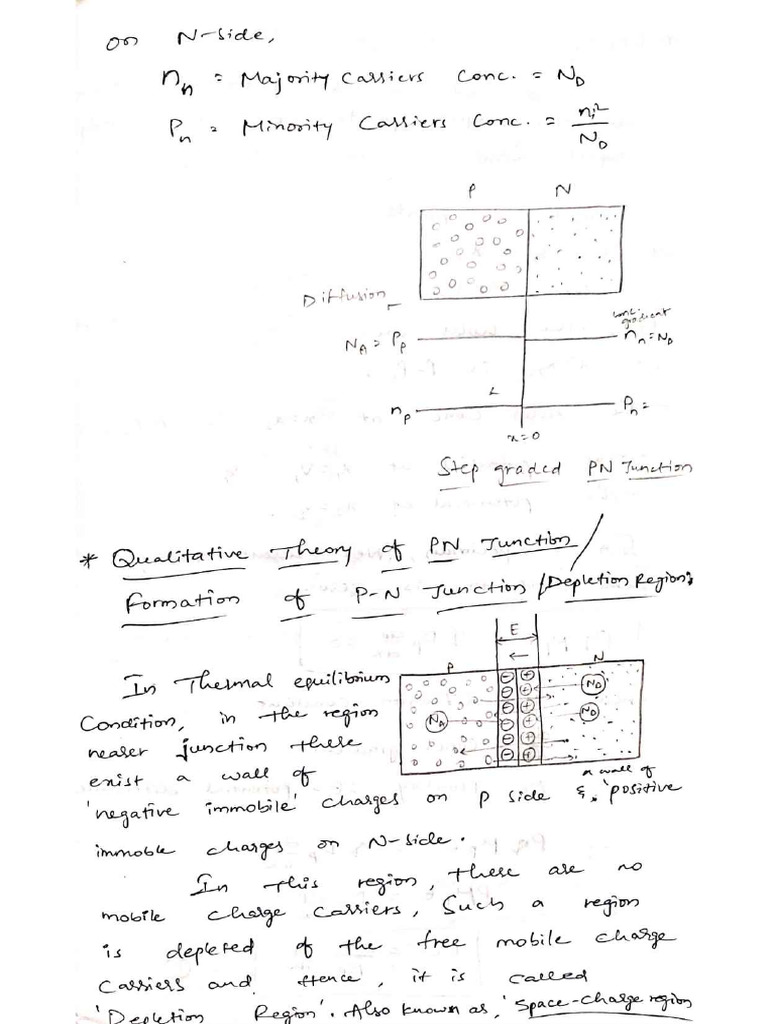 on N-side,
n_n = Majority Carriers Conc. = N_D
P_n = Minority Carriers Conc. = n_i^2 / N_D
P N
Diffusion
conc. gradient
N_A = P_p n_n = N_D
n_p P_n =
x=0
Step graded PN Junction
* Qualitative Theory of PN Junction/
Formation of P-N Junction/Depletion Region:
E
←
P N
In Thermal equilibrium
N_D
Condition, in the region
N_A N_D
nearer junction there
exist a wall of
a wall of
'negative immobile' charges on p side &. 'positive
immoble charges on N-side.
In this region, there are no
mobile charge carriers, Such a region
is depleted of the free mobile charge
Carriers and Hence, it is called
'Depletion Region'. Also known as, 'Space-Charge region